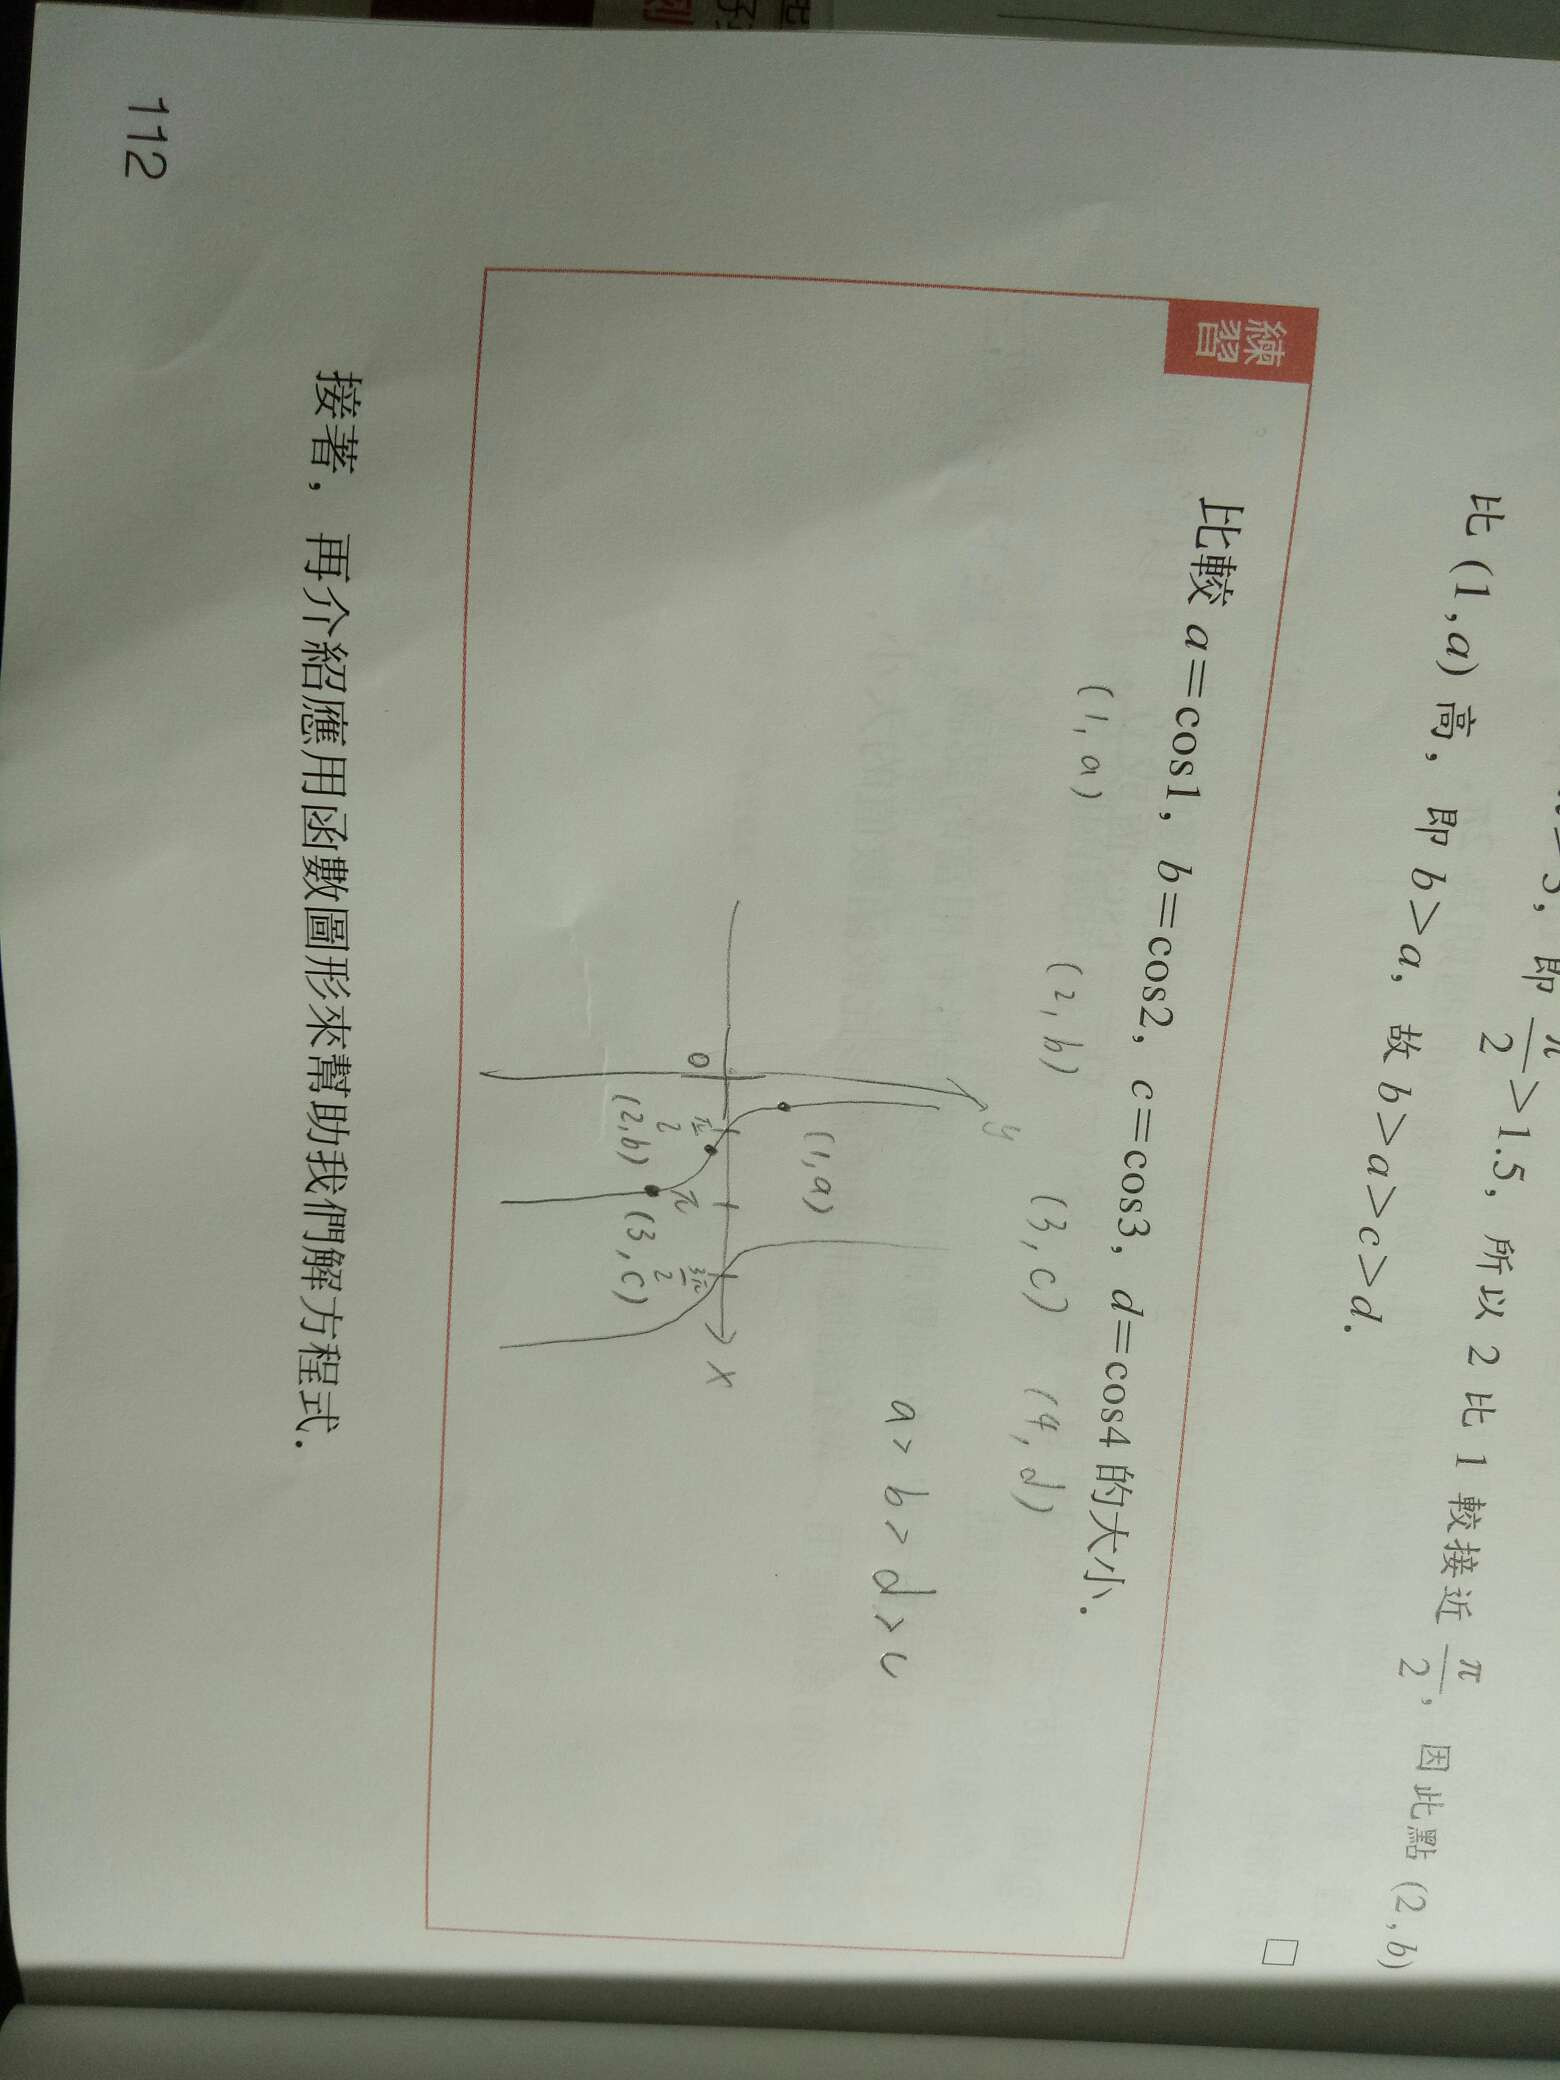 即 π/2 > 1.5, 所以 2 比 1 較接近 π/2, 因此點 (2,b)
比 (1,a) 高, 即 b>a, 故 b>a>c>d.
□
練習
比較 a=cos1, b=cos2, c=cos3, d=cos4 的大小.
(1,a) (2,b) (3,c) (4,d)
a>b>d>c
y
(1,a)
0 π/2 π 3π/2 x
(2,b) (3,c)
接著, 再介紹應用函數圖形來幫助我們解方程式.
112